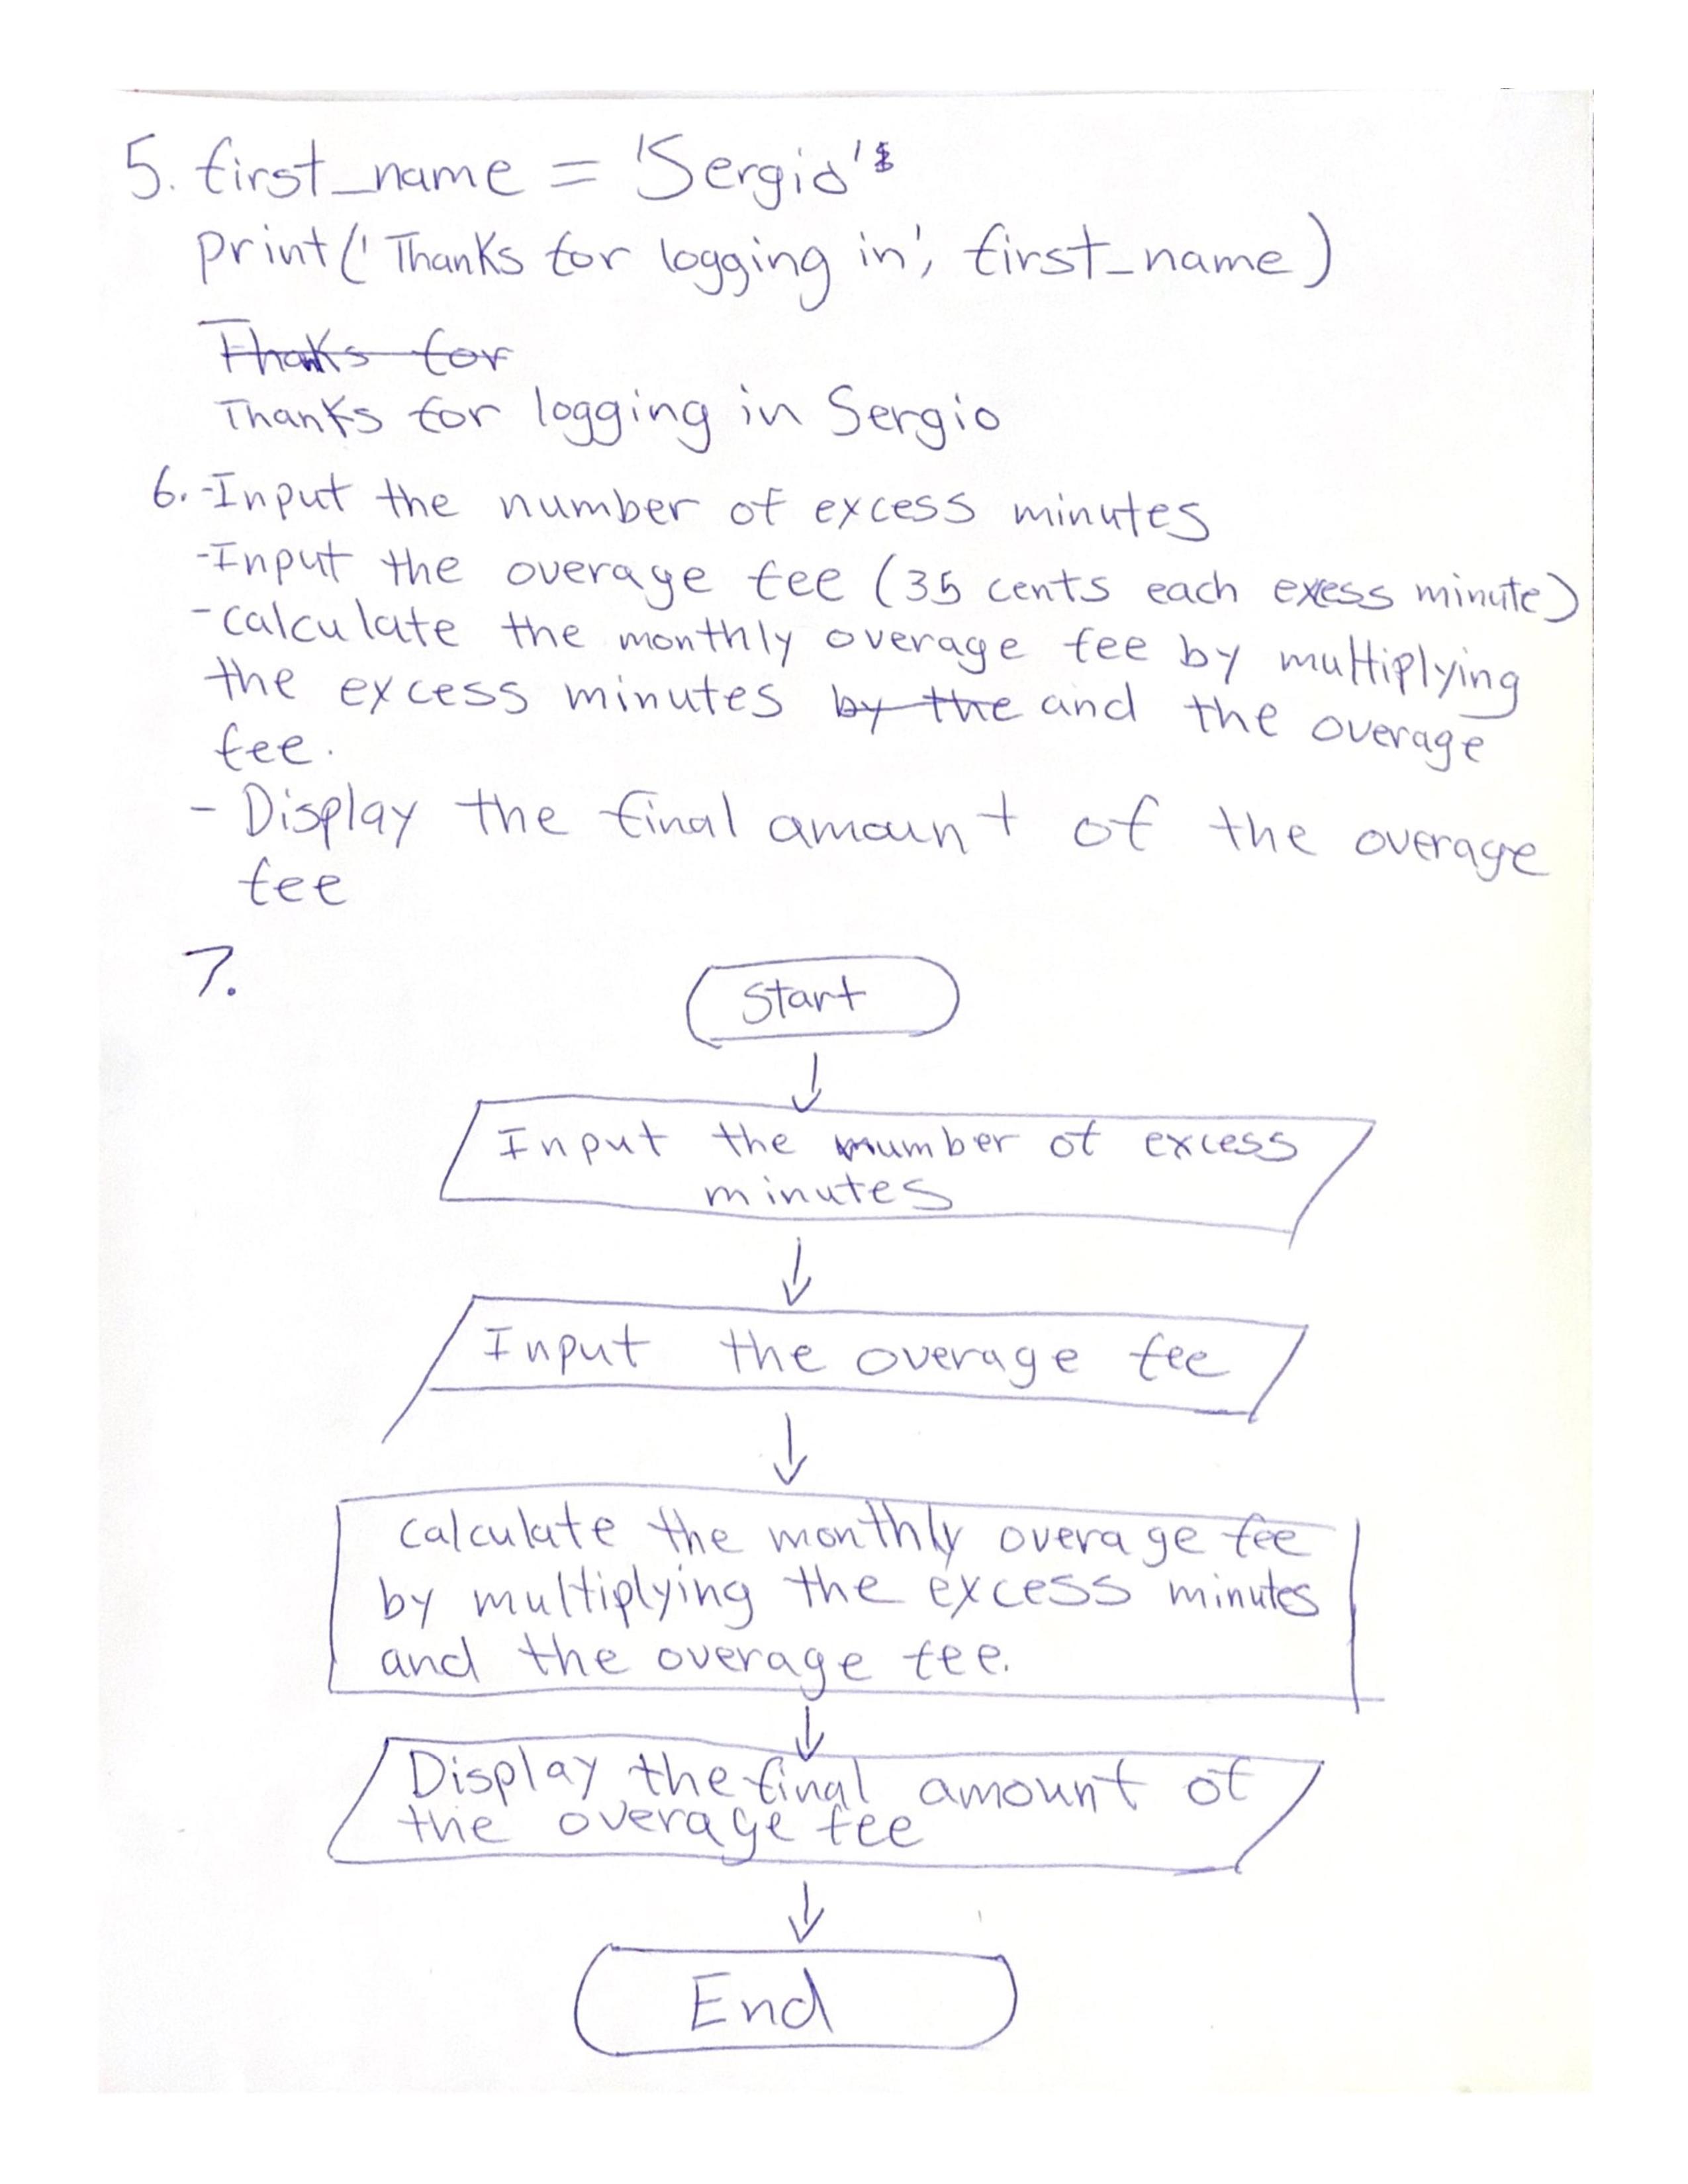 5. first_name = 'Sergio'
print('Thanks for logging in', first_name)
Thanks for
Thanks for logging in Sergio
6. -Input the number of excess minutes
-Input the overage fee (35 cents each exess minute)
-calculate the monthly overage fee by multiplying
the excess minutes by the and the overage
fee.
- Display the final amount of the overage
fee
7.
Start
Input the number of excess
minutes
Input the overage fee
calculate the monthly overage fee
by multiplying the excess minutes
and the overage fee.
Display the final amount of
the overage fee
End